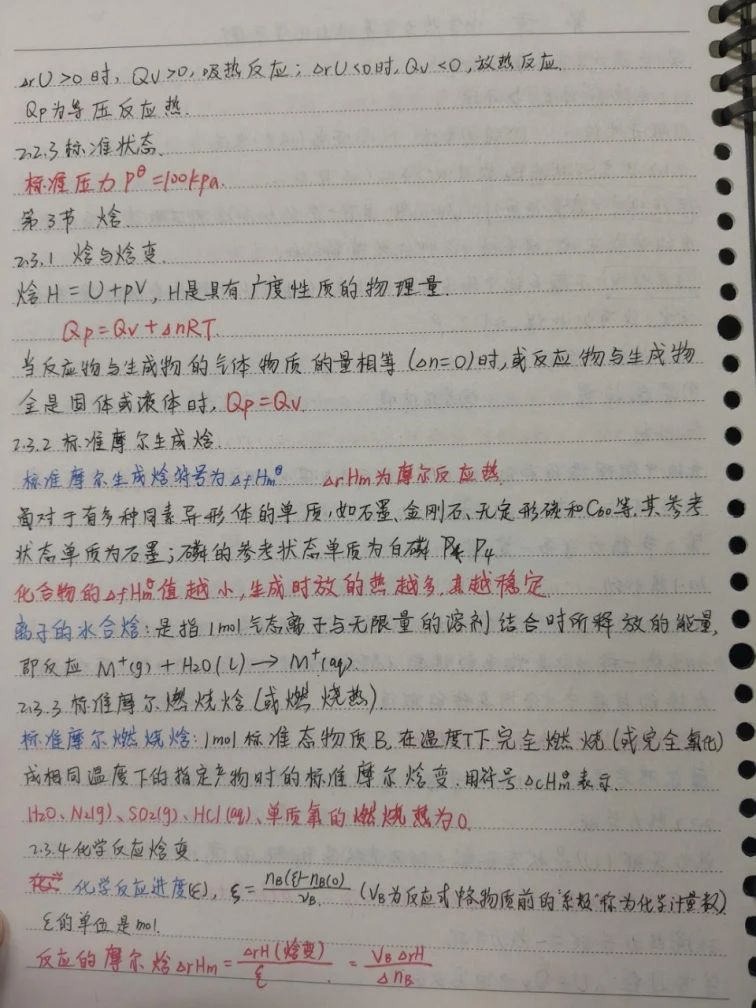 ΔrU>0时, Qv>0, 吸热反应; ΔrU<0时, Qv<0, 放热反应.
Qp为等压反应热.
2.2.3 标准状态.
标准压力 P^θ=100kpa.
第3节 焓.
2.3.1 焓与焓变.
焓H=U+pV, H是具有广度性质的物理量.
Qp=Qv+ΔnRT.
当反应物与生成物的气体物质的量相等(Δn=0)时,或反应物与生成物
全是固体或液体时, Qp=Qv.
2.3.2 标准摩尔生成焓.
标准摩尔生成焓符号为ΔfHm^θ ΔrHm为摩尔反应热
对于有多种同素异形体的单质,如石墨、金刚石、无定形碳和C60等,其参考
状态单质为石墨; 磷的参考状态单质为白磷 P4
化合物的ΔfHm^θ值越小,生成时放的热越多,其越稳定.
离子的水合焓: 是指1mol气态离子与无限量的溶剂结合时所释放的能量,
即反应 M⁺(g) + H2O(l) → M⁺(aq).
2.3.3 标准摩尔燃烧焓(或燃烧热).
标准摩尔燃烧焓: 1mol标准态物质B,在温度T下完全燃烧(或完全氧化)
成相同温度下的指定产物时的标准摩尔焓变.用符号ΔcHm^θ表示.
H2O、N2(g)、SO2(g)、HCl(aq)、单质氧的燃烧热为0.
2.3.4 化学反应焓变
化学反应进度(ξ), ξ=(nB(ξ)-nB(0))/νB (VB为反应式中各物质前的"系数"称为化学计量数).
ξ的单位是mol.
反应的摩尔焓ΔrHm=ΔrH(焓变)/ξ = VBΔrH/ΔnB